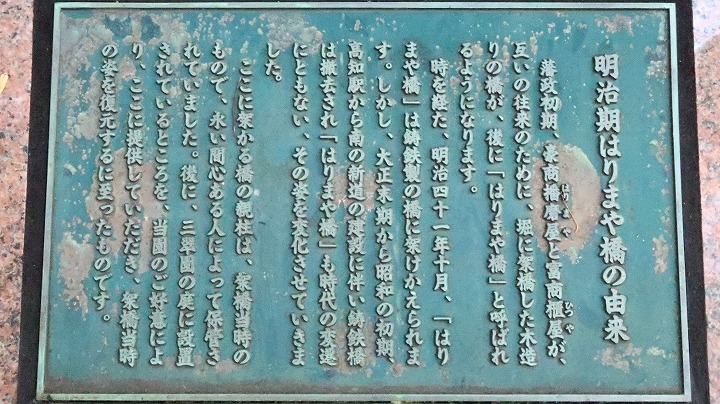 明治期はりまや橋の由来
藩政初期、豪商播磨屋と富商櫃屋が、
はりまや
ひつや
互いの往来のために、堀に架橋した木造
りの橋が、後に「はりまや橋」と呼ばれ
るようになります。
時を経た、明治四十一年十月、「はり
まや橋」は鋳鉄製の橋に架けかえられま
す。しかし、大正末期から昭和の初期、
高知駅から南の新道の建設に伴い鋳鉄橋
は撤去され「はりまや橋」も時代の変遷
にともない、その姿を変化させていきま
した。
ここに架かる橋の親柱は、架橋当時の
もので、永い間心ある人によって保管さ
れていました。後に、三翠園の庭に設置
されているところを、当園のご好意によ
り、ここに提供していただき、架橋当時
の姿を復元するに至ったものです。